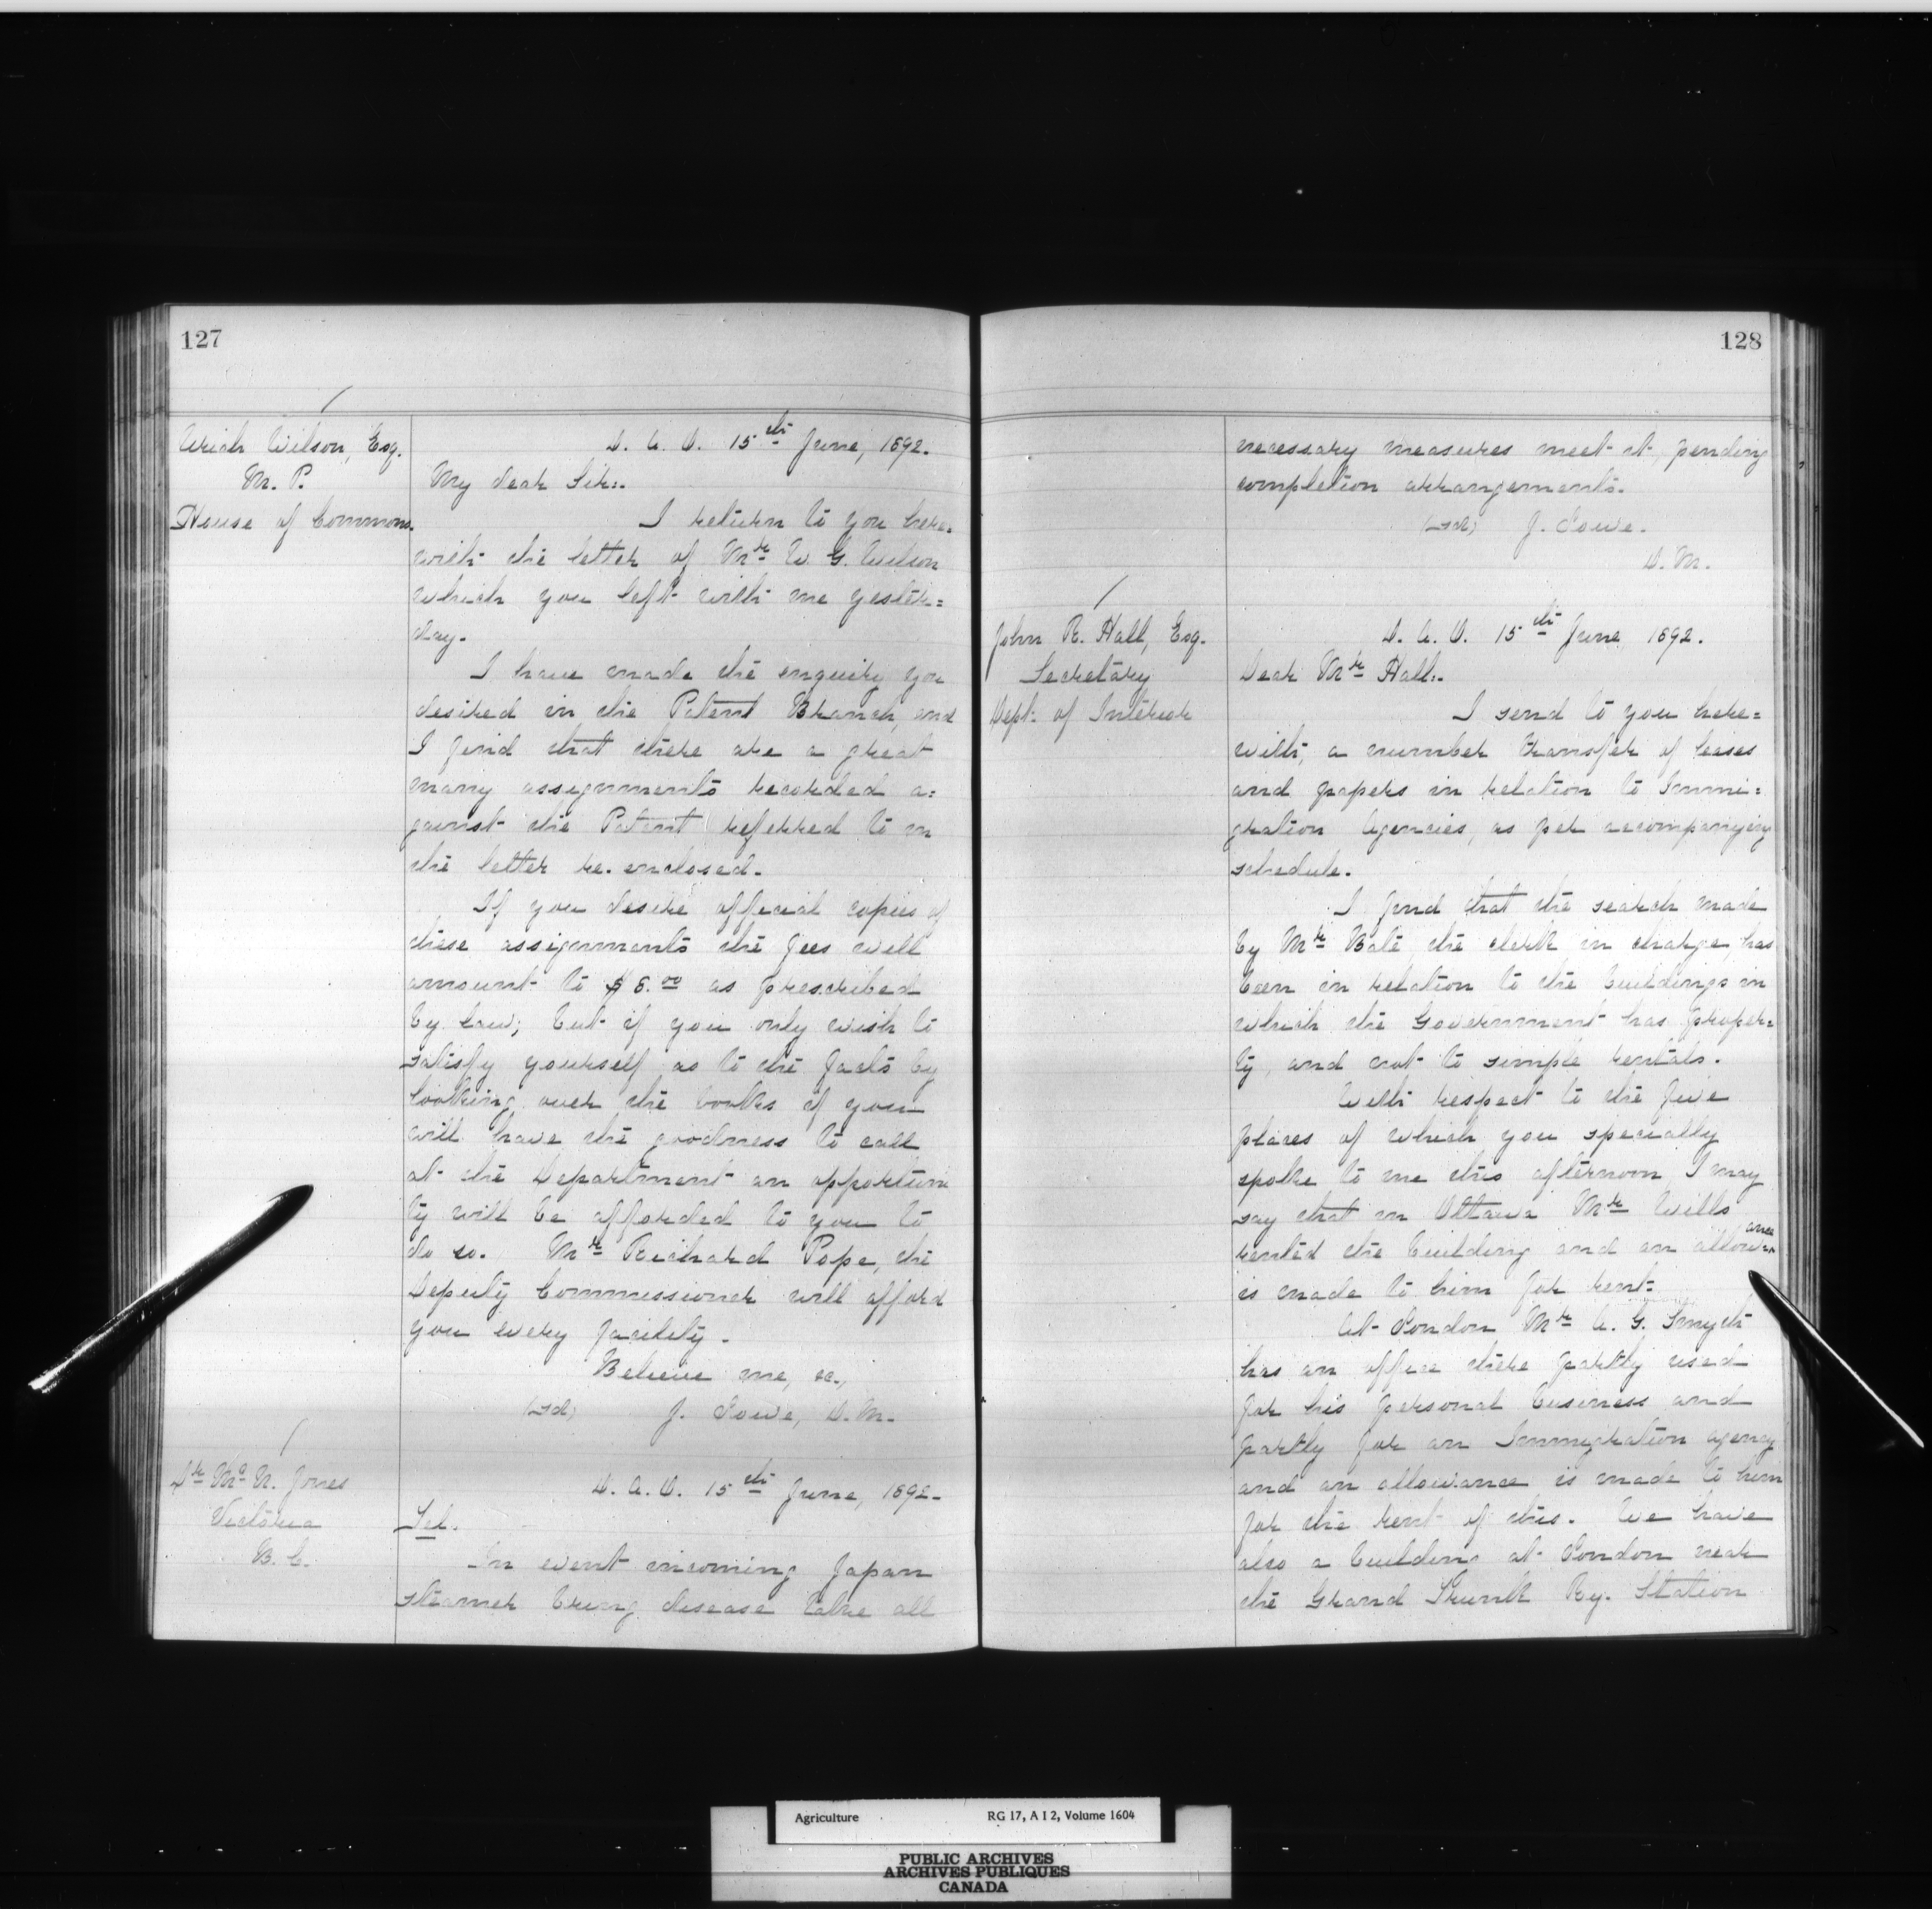 127
Uriah Wilson, Esq.
M. P.
House of Commons.
D. A. O. 15th June, 1892.
My dear Sir:.
I return to you here=
with the letter of Mr W. G. Wilson
which you left with me yester=
day.
I have made the enquiry you
desired in the Patent Branch, and
I find that there are a great
many assignments recorded a=
gainst the Patent referred to in
the letter re-enclosed.
If you desire official copies of
these assignments the fees will
amount to $ 6.00 as prescribed
by law; but if you only wish to
satisfy yourself as to the facts by
looking over the books if you
will have the goodness to call
at the Department an opportuni
ty will be afforded to you to
do so. Mr Richard Pope, the
Deputy Commissioner will afford
you every facility.
Believe me, &c.,
(Sd) J. Lowe, D. M.
Dr Mc N. Jones
Victoria
B. C.
D. A. O. 15th June, 1892.
Tel.
In event incoming Japan
steamer bring disease take all
128
necessary measures meet it, pending
completion arrangements.
(Sd) J. Lowe.
D. M.
John R. Hall, Esq.
Secretary
Dept. of Interior
D. A. O. 15th June 1892.
Dear Mr Hall:.
I send to you here=
with, a number transfer of leases
and papers in relation to Immi=
gration Agencies, as per accompanying
schedule.
I find that the search made
by Mr the clerk in charge, has
been in relation to the buildings in
which the Government has proper=
ty, and not to simple rentals.
With respect to the five
places of which you specially
spoke to me this afternoon, I may
say that in Ottawa Mr Wills
rented the building and an allowance
is made to him for rent.
At London Mr A. G. Smyth
has an office there partly used
for his personal business and
partly for an Immigration agency
and an allowance is made to him
for the rent of this. We have
also a building at London near
the Grand Trunk Ry. Station
Agriculture RG 17, A I 2, Volume 1604
PUBLIC ARCHIVES
ARCHIVES PUBLIQUES
CANADA